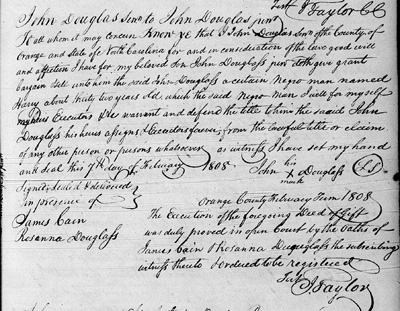 Test J Taylor CC
John Douglass Senr to John Douglass junr
To all whom it may concern Know ye that I John Douglass Senr of the County of
Orange and State of North Carolina for and in consideration of the love good will
and affection I have for my beloved Son John Douglass junr doth give grant
bargain Sell unto him the said John Douglass a certain Negro man named
Harry about thirty two years old, which the said Negro Man I will for myself
my Executors &c warrant and defend the title to him the said John
Douglass his heirs assigns Executors forever, from the lawful title or claim
of any other person or persons whatsoever as witness I have set my hand
and Seal this 7th day of February 1808
John his X mark Douglass LS
Signed Seal'd & delivered
in presence of
James Cain
Rosanna Douglass
Orange County February Term 1808
The Execution of the foregoing Deed of Gift
was duly proved in open Court by the Oaths of
James Cain & Rosanna Douglass the subscribing
witness thereto & ordered to be registered
Test J Taylor